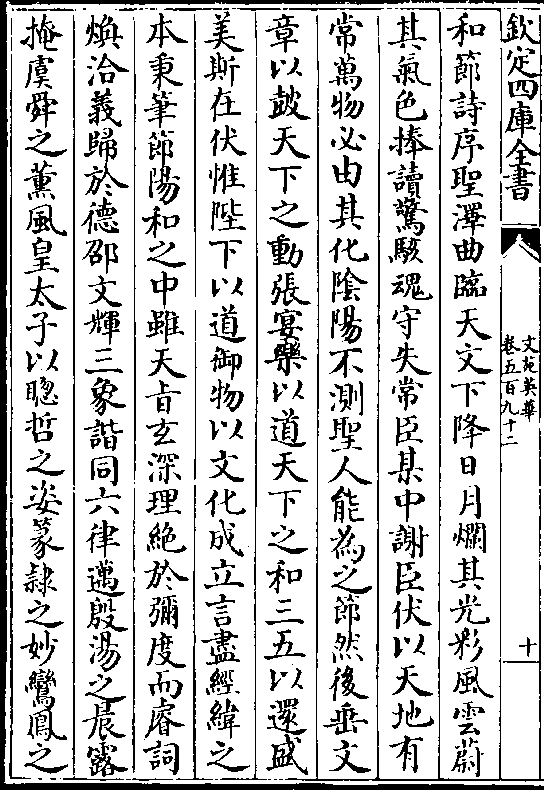 欽定四庫全書
文苑英華
卷五百九十二
十
和節詩序聖澤曲臨天文下降日月爛其光彩風雲蔚
其氣色捧讀驚駭魂守失常臣某中謝臣伏以天地有
常萬物必由其化陰陽不測聖人能為之節然後垂文
章以鼓天下之動張宴樂以道天下之和三五以還盛
美斯在伏惟陛下以道御物以文化成立言盡經緯之
本秉筆節陽和之中雖天旨玄深理絕於彌度而睿詞
煥洽義歸於德邵文輝三象諧同六律邁殷湯之晨露
掩虞舜之薰風皇太子以聰哲之姿篆隷之妙鸞鳳之